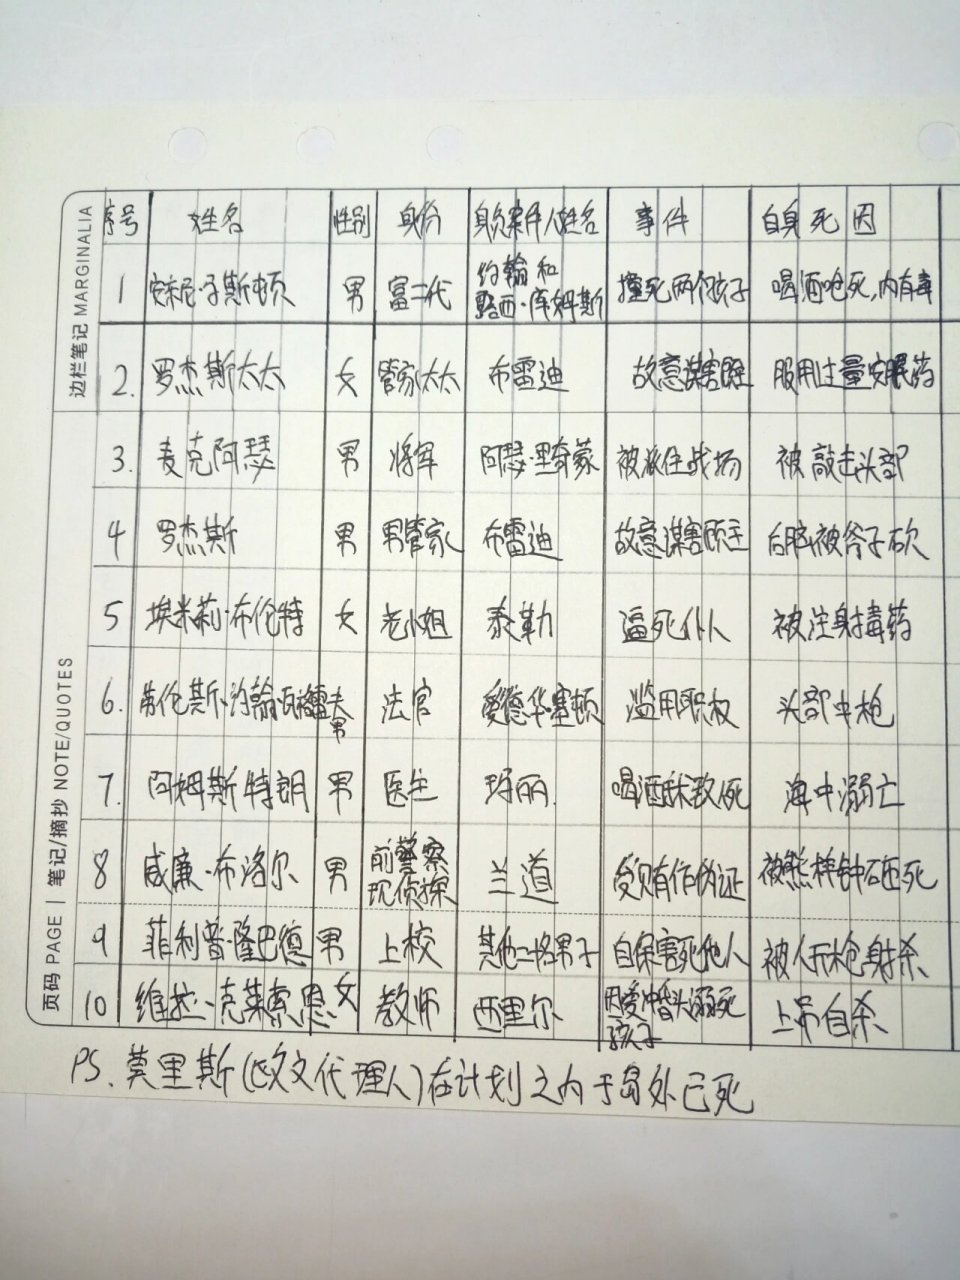 边栏笔记 MARGINALIA
页码 PAGE | 笔记/摘抄 NOTE/QUOTES
序号 姓名 性别 身份 身负案件人姓名 事件 自身死因
1 安东尼·马斯顿 男 富二代 约翰和露西·库姆斯 撞死两个孩子 喝酒呛死,内有毒
2. 罗杰斯太太 女 管家太太 布雷迪 故意谋害 服用过量安眠药
3. 麦克阿瑟 男 将军 阿瑟·里奇蒙 被派往战场 被敲击头部
4 罗杰斯 男 男管家 布雷迪 故意谋害顾主 后脑被斧子砍
5 埃米莉·布伦特 女 老小姐 泰勒 逼死仆人 被注射毒药
6. 劳伦斯·约翰·瓦格雷夫 男 法官 爱德华·塞顿 滥用职权 头部中枪
7. 阿姆斯特朗 男 医生 玛丽. 喝酒手术致死 海中溺亡
8 威廉·布洛尔 男 前警察现侦探 兰道 受贿作伪证 被熊样钟砸死
9 菲利普·隆巴德 男 上校 其他二十名男子 自保害死他人 被人开枪射杀
10 维拉·克莱索恩 女 教师 西里尔 因爱冲昏头溺死孩子 上吊自杀
PS. 莫里斯(欧文代理人)在计划之内于岛外已死